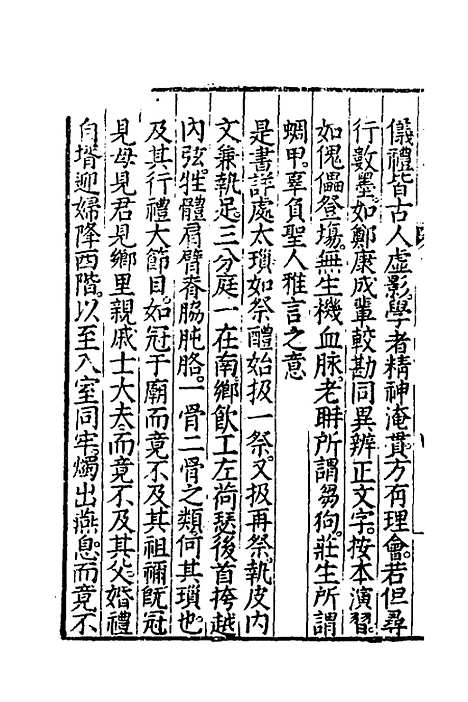 儀禮皆古人虛影學者精神淹貫方有理會若但尋
行數墨如鄭康成輩較勘同異辨正文字按本演習
如傀儡登場無生機血脉老聃所謂芻狗莊生所謂
蜩甲辜負聖人雅言之意
是書詳處太瑣如祭醴始扱一祭又扱再祭執皮內
文兼執足三分庭一在南鄉飲工左荷瑟後首挎越
內弦牲體肩臂脊脇肫胳一骨二骨之類何其瑣也
及其行禮大節目如冠于廟而竟不及其祖禰旣冠
見母見君見鄉里親戚士大夫而竟不及其父婚禮
自壻迎婦降西階以至入室同牢燭出燕息而竟不